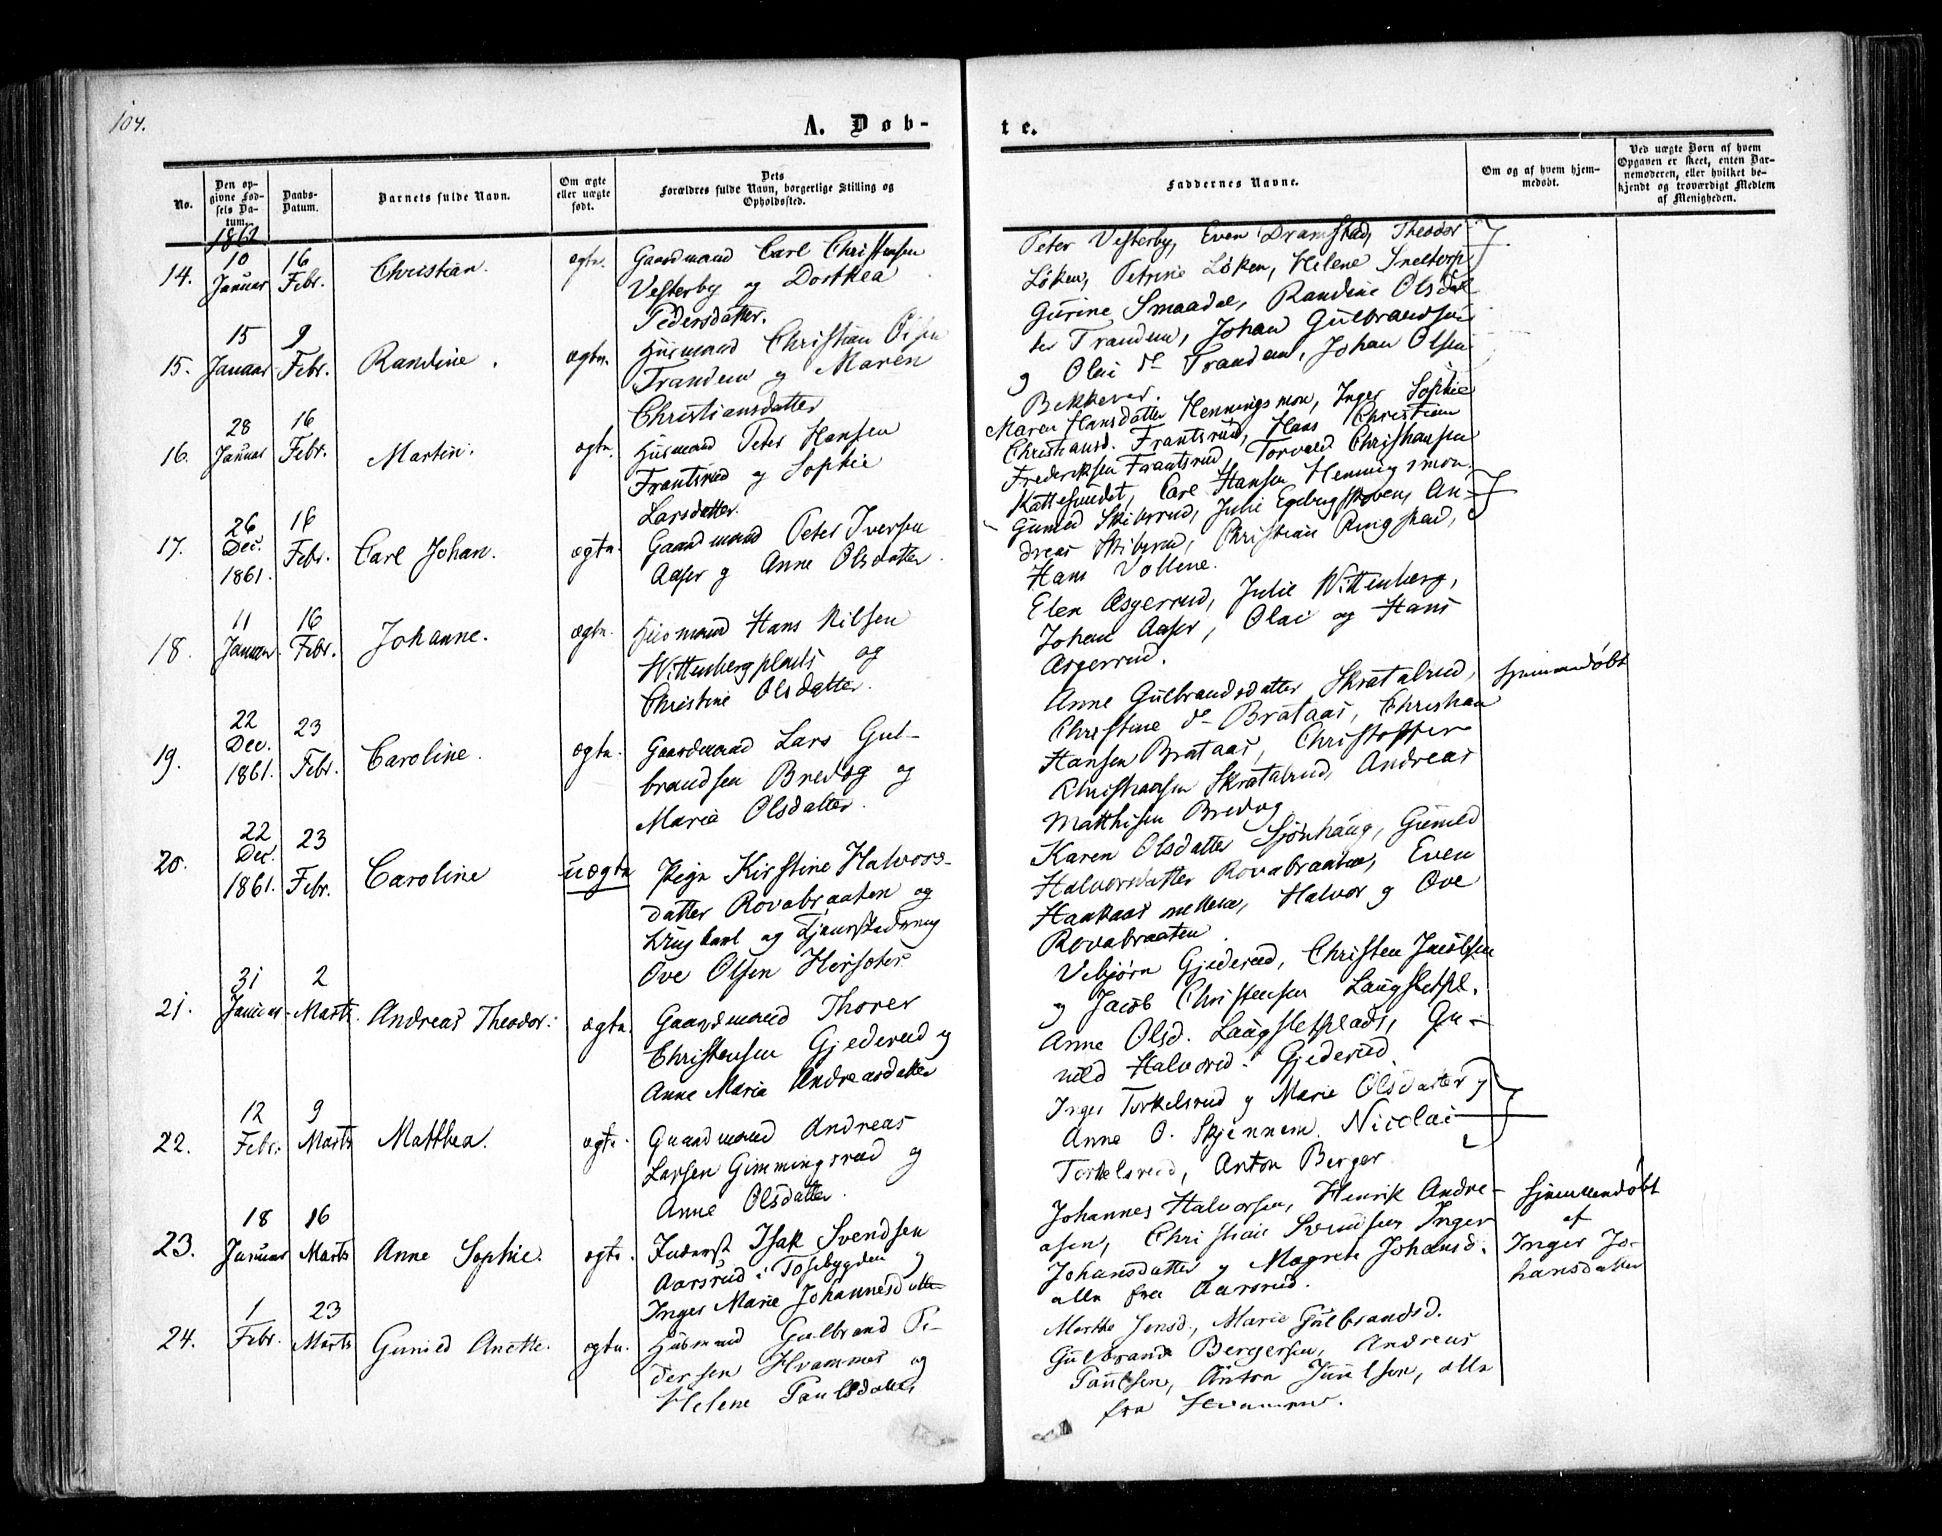 104.
A. Døb-
te.
No.
Den op-
givne Fød-
sels Da-
tum.
Daabs-
Datum.
Barnets fulde Navn.
Om ægte
eller uægte
født.
Dets
Forældres fulde Navn, borgerlige Stilling og
Opholdssted.
Faddernes Navne.
Om og af hvem hjem-
medøbt.
Ved uægte Børn af hvem
Opgaven er skeet, enten Bar-
nemoderen, eller hvilket be-
kjendt og troværdigt Medlem
af Menigheden.
1862
14.
10
Januar
16
Febr.
Christian.
ægte.
Gaardmand Carl Christensen
Vesterby og Dorthea
Pedersdatter.
Peter Vesterby, Even Dramstad, Theodor
Løken, Petrine Løken, Helene
Gurine Smaadal,
15.
15
Januar
9
Febr.
Randine.
ægte.
Husmand Christian Olsen
Trandem og Maren
Christiansdatter
Randine Olsdat
ter Trandem, Johan Gulbrandsen
og Olai do Trandem, Johan Olsen
Bekkevar.
16.
28
Januar
16
Febr.
Martin.
ægte.
Husmand Peter Hansen
Frantsrud og Sophie
Larsdatter.
Maren Hansdatter Henningsmon, Inger Sophie
Christiansd. Frantsrud, Hans Christian
Frederiksen Frantsrud, Torvald Christiansen
Kattesundet, Carl Hansen Henningsmon
17.
26
Dec.
1861.
16
Febr.
Carl Johan.
ægte.
Gaardmand Peter Iversen
Aaser og Anne Olsdatter.
Gunild Skiberud, Julie Egebergskoven, An-
dreas Skiberud, Christian Ringstad,
Hans Vollene.
18.
11
Januar
16
Febr.
Johanne.
ægte.
Husmand Hans Nilsen
Wittenbergplads og
Christine Olsdatter.
Elen Asgerrud, Julie Wittenberg,
Johan Aaser, Olai og Hans
Asgerrud.
19.
22
Dec.
1861.
23
Febr.
Caroline.
ægte.
Gaardmand Lars Gul-
brandsen Bredog og
Maria Olsdatter.
Anne Gulbrandsdatter Skratalrud,
Christine do Brataas, Christian
Hansen Brataas, Christoffer
Christiansen Skratalrud, Andreas
Matthisen Bredog
hjemmedøbt
20.
22
Dec.
1861.
23
Febr.
Caroline
uægte
Pige Kirstine Halvors-
datter Rovabraaten og
Ungkarl og Tjenestedreng
Ove Olsen Herseter
Karen Olsdatter Sjønhaug, Gunild
Halvorsdatter Rovabraaten, Even
Haakaas mellem, Halvor og Ove
Rovabraaten.
21.
31
Januar
2
Marts.
Andreas Theodor.
ægte.
Gaardmand Thorer
Christensen Gjederud og
Anne Maria Andreasdatter
Vebjørn Gjederud, Christen Jacobsen
og Jacob Christensen Laugsletpl.
Anne Olsd. Laugsletplads, Gu-
nild Halvorsd. Gjederud.
22.
12
Febr.
9
Marts
Matthea.
ægte.
Gaardmand Andreas
Larsen Gimmingsrud og
Anne Olsdatter.
Inger Torkelsrud og Marie Olsdatter og
Anne O. Skjennem. Nicolai
Torkelsrud, Anton Berger
23.
18
Januar
16
Marts
Anne Sophie.
ægte.
Inderst Isak Svendsen
Aarsrud i Tosebygden og
Inger Marie Johannesdatter
Johannes Halvorsen, Henrik Andre-
asen, Christian Svendsen Inger
Johansdatter og Magrete Johansd.
alle fra Aarsrud.
hjemmedøbt
af
Inger Jo-
hansdatter
24.
1
Febr.
23
Marts
Gunild Anette.
ægte.
Husmand Gulbrand Pe-
dersen Hvammer og
Helene Paulsdatter
Marthe Jensd., Marie Gulbrandsd.
Gulbrand Bergersen, Andreas
Paulsen, Anton Juulsen, alle
fra Hvammer.